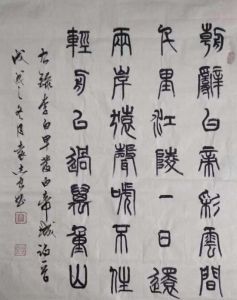 朝辭白帝彩雲間
千里江陵一日還
兩岸猿聲啼不住
輕舟已過萬重山
右錄李白早發白帝城詩一首
戊戌之冬月